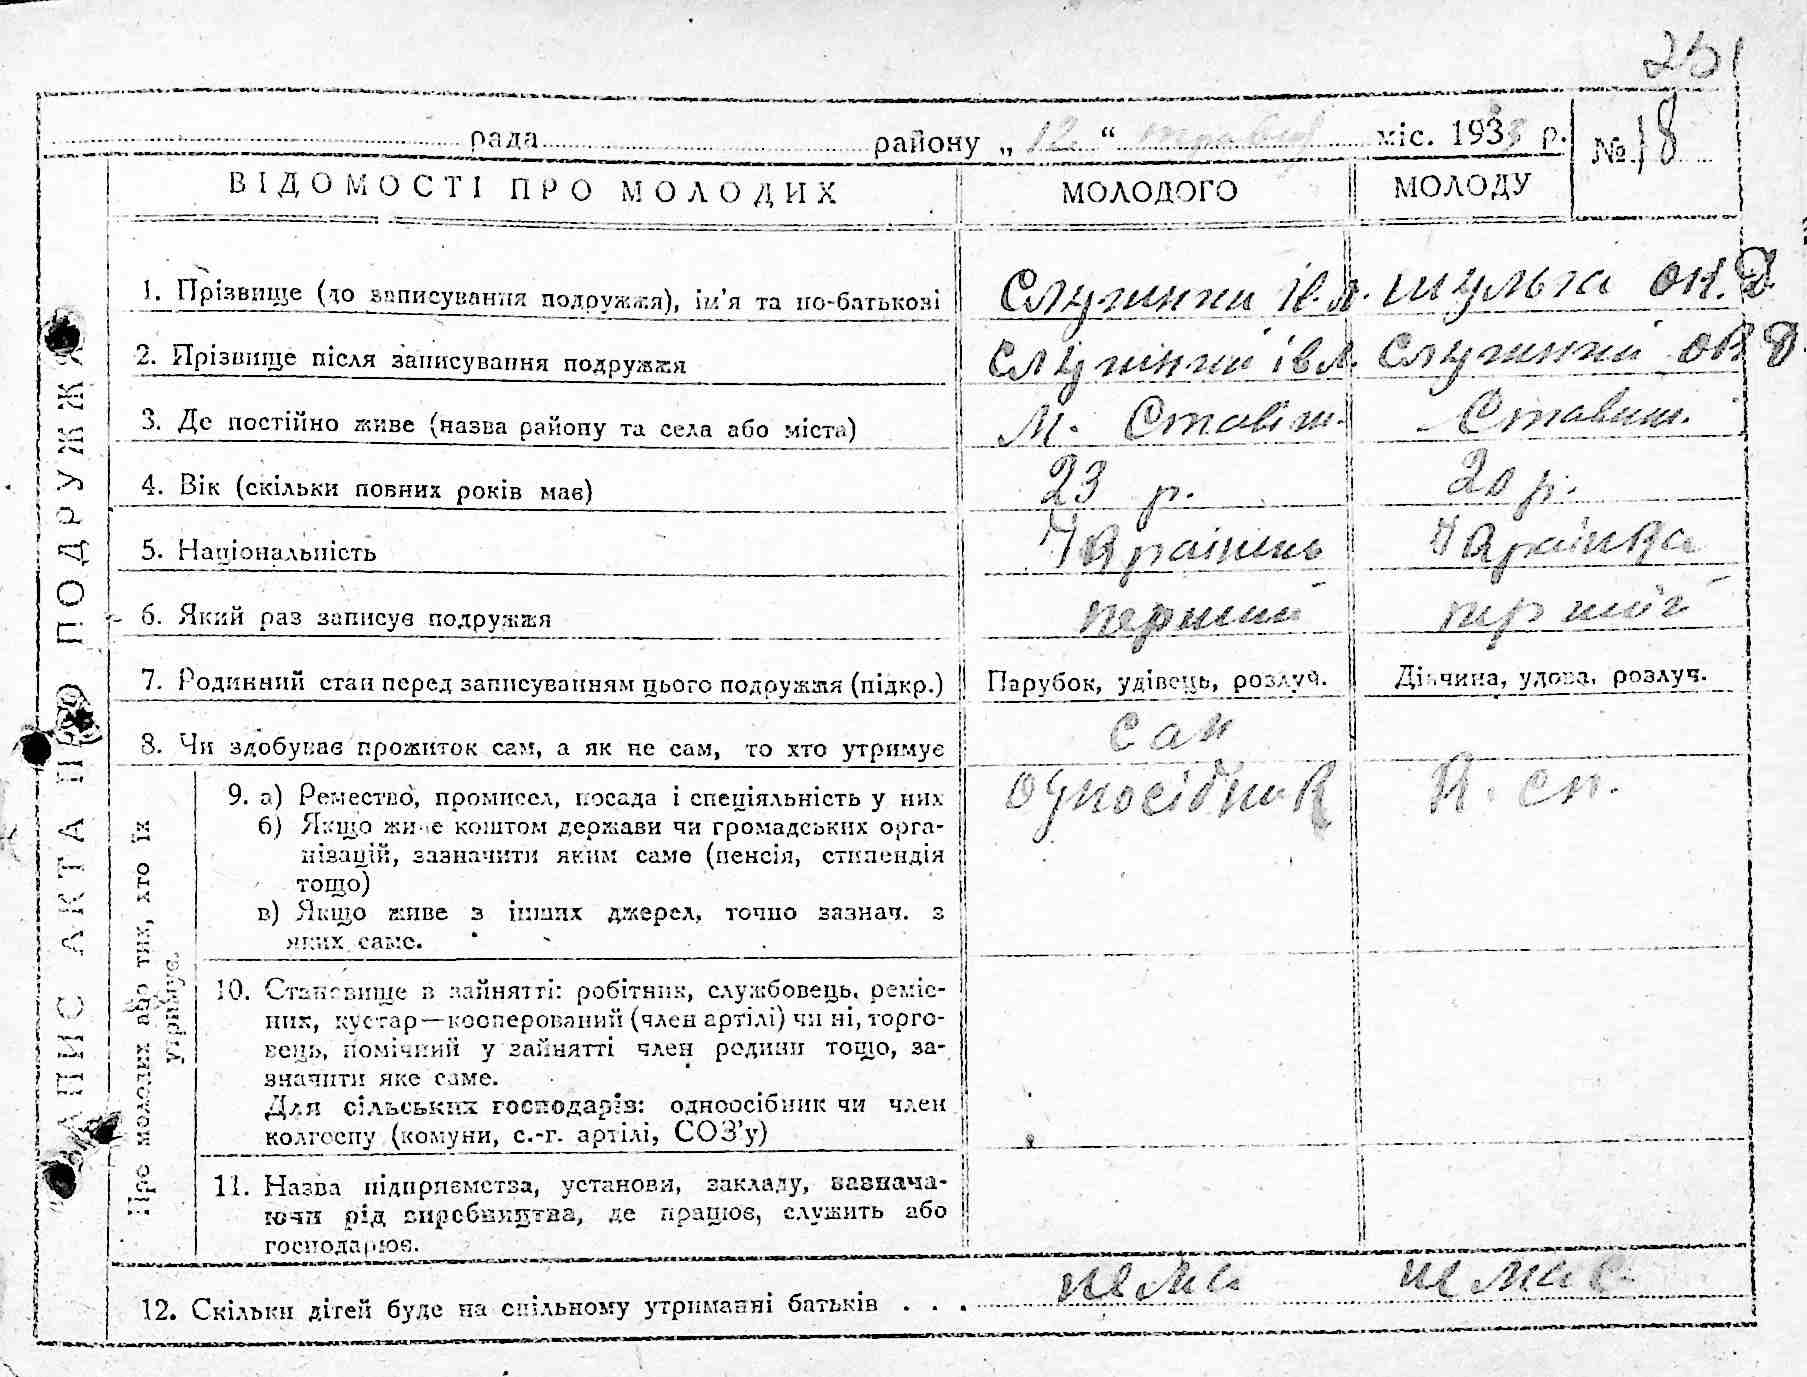 251
рада району „ 12 “ травня міс. 1933 р. № 18
ВІДОМОСТІ ПРО МОЛОДИХ МОЛОДОГО МОЛОДУ
ЗАПИС АКТА ПРО ПОДРУЖЖЯ
1. Прізвище (до записування подружжя), ім’я та по-батькові Ів. Л. Шульга Ок. Д.
2. Прізвище після записування подружжя Ів Л. Ок Д
3. Де постійно живе (назва району та села або міста) м. Ставищ. Ставищ.
4. Вік (скільки повних років має) 23 р. 20 р.
5. Національність Українець Українка
6. Який раз записує подружжя перший перший
7. Родинний стан перед записуванням цього подружжя (підкр.) Парубок, удівець, розлуч. Дівчина, удова, розлуч.
8. Чи здобуває прожиток сам, а як не сам, то хто утримує сам
Про молодих або тих, хто їх
утримує.
9. а) Ремество, промисел, посада і спеціяльність у них односібник
б) Якщо живе коштом держави чи громадських орга-
нізацій, зазначити яким саме (пенсія, стипендія
тощо)
в) Якщо живе з інших джерел, точно зазнач. з
яких саме.
10. Становище в зайнятті: робітник, службовець, реміс-
ник, кустар—кооперований (член артілі) чи ні, торго-
вець, помічний у зайнятті член родини тощо, за-
значити яке саме.
Для сільських господарів: одноосібник чи член
колгоспу (комуни, с.-г. артілі, СОЗ’у)
11. Назва підприємства, установи, закладу, зазнача-
ючи рід виробництва, де працює, служить або
господарює.
12. Скільки дітей буде на спільному утриманні батьків . . . нема немає